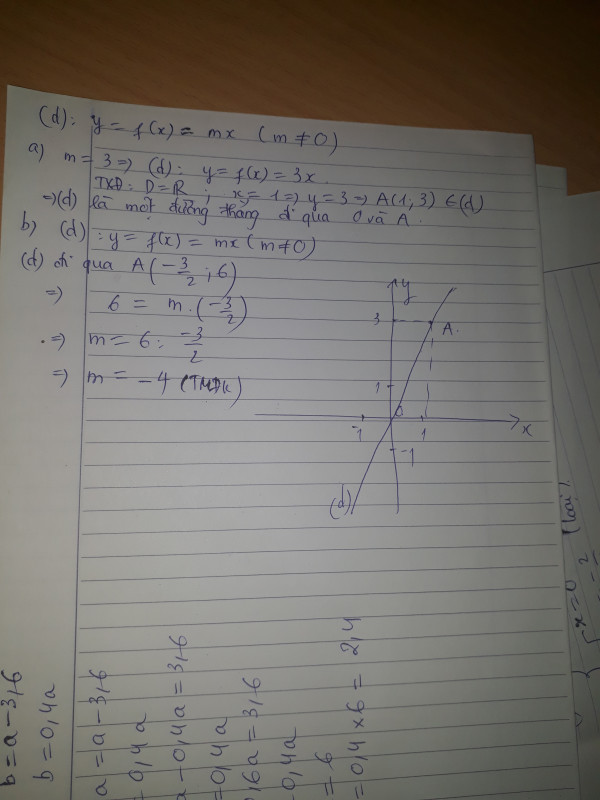 (d): y = f(x) = mx (m ≠ 0)
a) m = 3 => (d): y = f(x) = 3x.
TXĐ: D = R ; x = 1 => y = 3 => A(1;3) ∈ (d)
=> (d) là một đường thẳng đi qua O và A.
b) (d) : y = f(x) = mx (m ≠ 0)
(d) đi qua A(-3/2 ; 6)
=> 6 = m.(-3/2)
=> m = 6 : -3/2
=> m = -4 (TMĐK)
y
3
A.
1
O
-1
1
x
-1
(d)
b = a - 3,6
b = 0,4a
a = a - 3,6
0,4a
a - 0,4a = 3,6
= 0,4a
0,6a = 3,6
0,4a
= 6
= 0,4 x 6 = 2,4
x = 0 (loại)